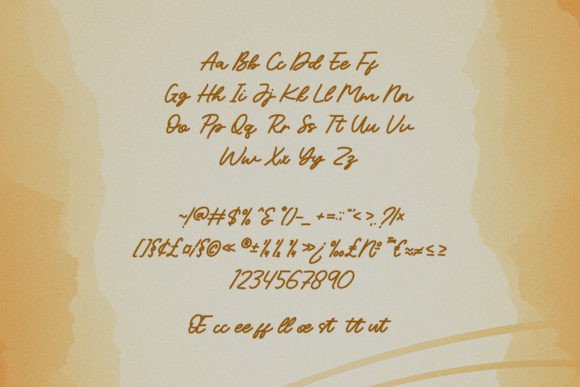 Aa Bb Cc Dd Ee Ff
Gg Hh Ii Jj Kk Ll Mm Nn
Oo Pp Qq Rr Ss Tt Uu Vv
Ww Xx Yy Zz
~!@#$%^&*()-_ +=:;"'<>,.?/×
[]§¢£¤/§©«®±¼½¾»¿‰£№™€≈≠≤≥
1234567890
Œ cc ee ff ll œ st tt ut